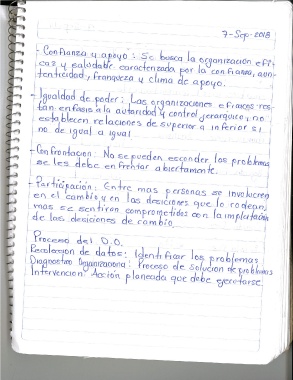 7-Sep-2018
- Confianza y apoyo: Se busca la organización efi-
caz y saludable caracterizada por la confianza, aun-
tenticidad, franqueza y clima de apoyo.
- Igualdad de poder: Las organizaciones eficaces res-
tan enfasis a la autoridad y control jerarquico, no
establecen relaciones de superior a inferior si
no de igual a igual
- Confrontacion: No se pueden esconder los problemas
se les debe enfrentar abiertamente.
- Participación: Entre mas personas se involucren
en el cambio y en las desiciones que lo rodean,
mas se sentiran comprometidos con la implantación
de las desiciones de cambio.
Proceso del D.O.
Recolección de datos: Identificar los problemas
Diagnostico Organizacional: Proceso de solucion de problemas
Intervencion: Acción planeada que debe ejecutarse.